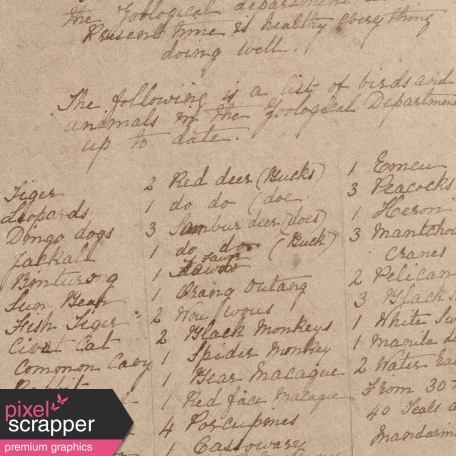 the Zoological department
Present time is healthy every thing
doing well.
The following is a list of birds and
animals in the Zoological Department
up to date.
Tiger
Leopards
Dongo dogs
Jackall
Binturong
Sun Bear
Fish Tiger
Civat Cat
Common Cavy
2 Red deer (Bucks)
1 do do (doe
3 Sambur deer (does)
1 do do (Buck)
1 Fawn
1 Orang Outang
2
2 Black Monkeys
1 Spider Monkey
1 Bear Macaque
1 Red face Macaque
4 Porcupines
1 Cassowary
1 Emeu
3 Peacocks
1 Heron
3 Mantchou
cranes
2 Pelican
3 Black S
1 White Sw
1 Manila
2 Water
From 30
40 Teals
Mandarin
pixel scrapper
premium graphics